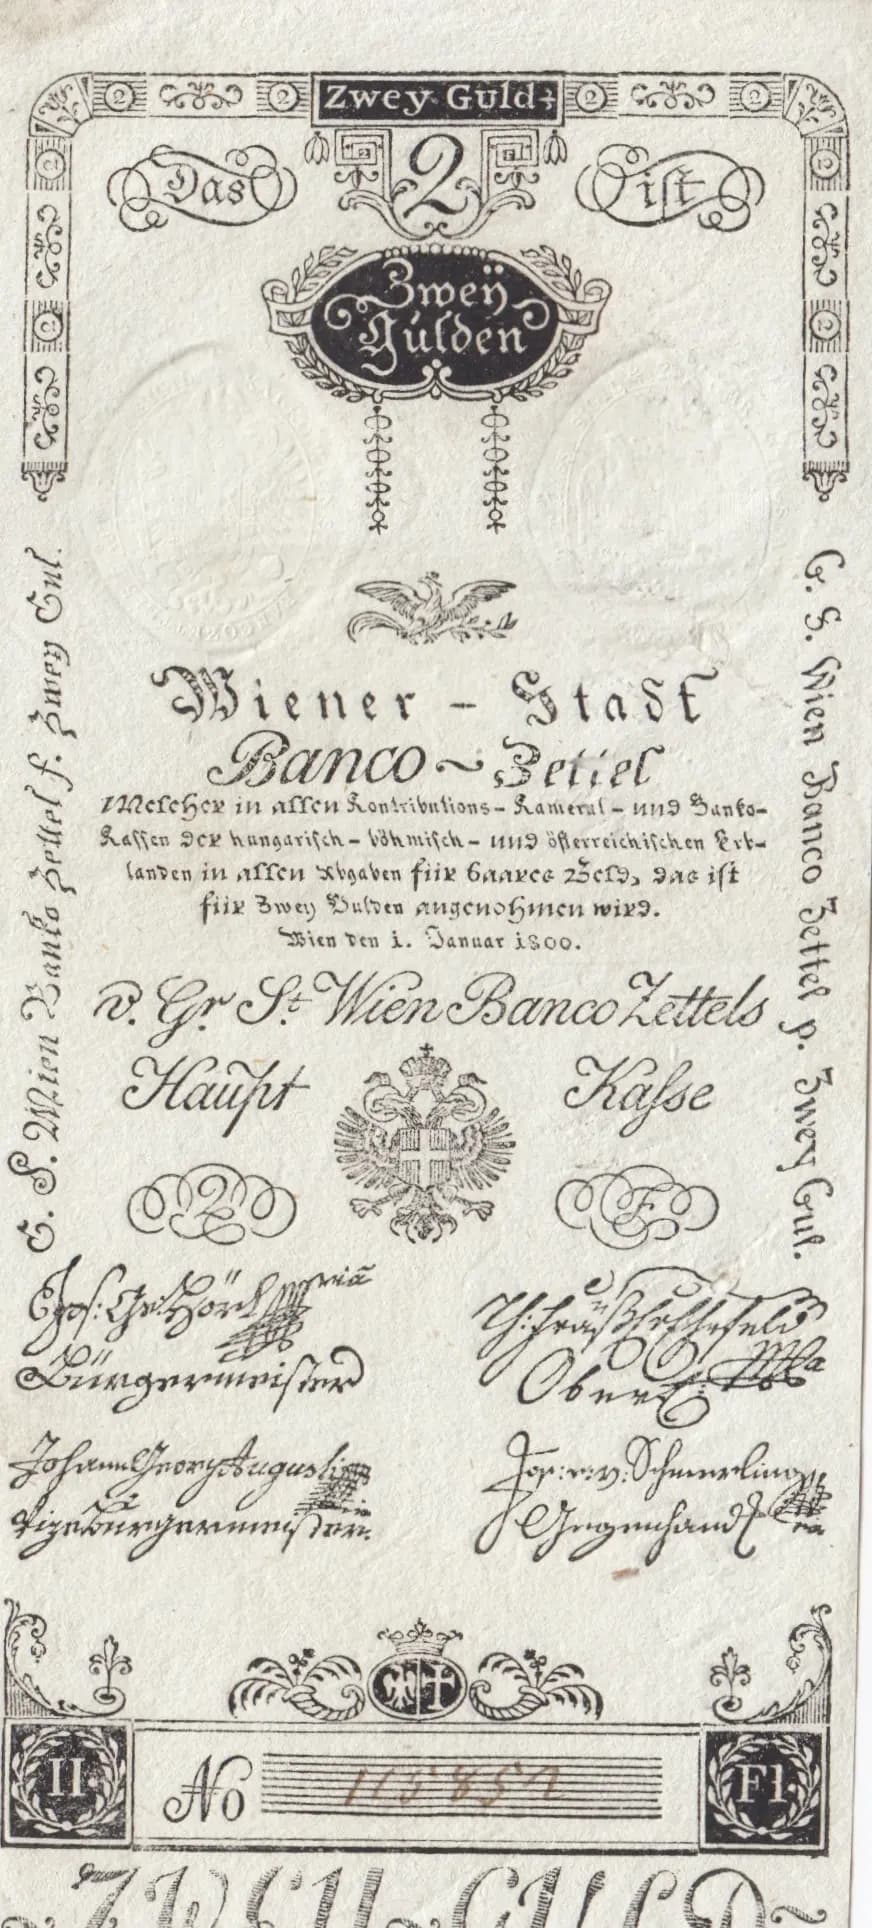 Zwey Guld:
2 2 2 2
Das 2 ist
Zweÿ
Gulden
Wiener - Stadt
Banco ~ Zettel
Welcher in allen Kontributions- Kameral- und Banko-
Kassen der hungarisch- böhmisch- und österreichischen Erb-
landen in allen Abgaben für baares Geld, das ist
für Zwey Gulden angenohmen wird.
Wien den 1. Januar 1800.
v. Gr. St. Wien Banco Zettels
Haupt Kasse
2 F
G. S. Wien Banko Zettel f. Zwey Gul.
G. S. Wien Banco Zettel p. Zwey Gul.
Jos: Ge: Hörl
Bürgermeister
Johann Georg Augusti
Vizebürgermeister.
Jos: v: Schmerling
Gegenhand
II No 115852 Fl.
ZWEY GULD